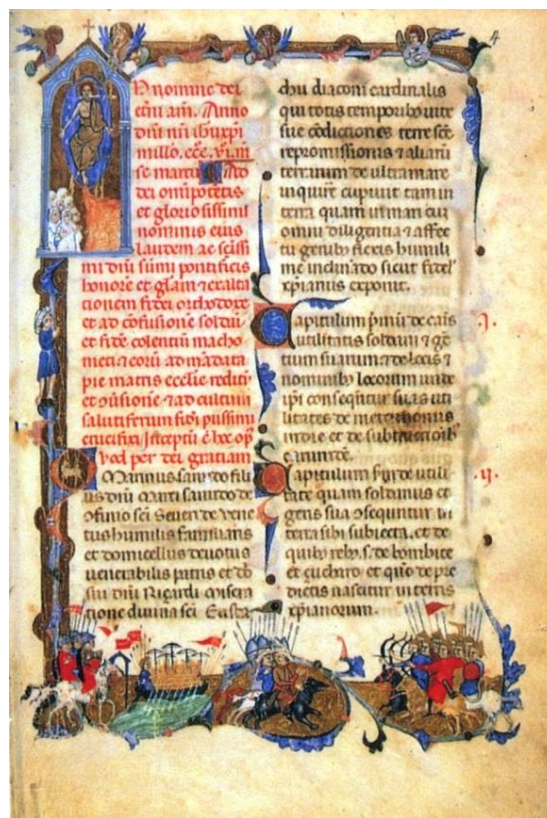 4
N nomine dei
eius am̄. Anno
dn̄i nr̄i ihu xpi
millo. ccc. vi. m̄
se martii
dei omipotētis
et gloriosissimi
nominis eius
laudem ac
mi dn̄i sūmi pontificis
honorē et glām ⁊ exalta
tionem fidei orthodoxe
et ad cōfusionē soldai
et fidē colentiū macho
meti ⁊ eorū ad mādata
pie matris ecclie
et ⁊ ad cultum
salutiferum fidei piissimi
crucifixi Īceptū ē hoc op̄
per dei gratiam
Marinus sanudo fili
us dn̄i Marci sanudo de
sci Seueri de vene
tiis humilis familiaris
et domicellus deuotus
uenerabilis patris et
dn̄i Ricardi misera
tione diuina sci Eusta
chii diaconi cardinalis
qui totis temporibꝰ vite
sue cōditiones terre sce
repromissionis ⁊ aliarū
terrarum de ultra mare
inquire cupiuit tam in
terra quam in mari cur
omni diligentia ⁊ affec
tu genibꝰ flexis humili
me inclinādo sicut fidel'
xpianus exponit.
Capitulum p̄mū de
utilitatis soldani ⁊ gē
tium suarum ⁊ de locis ⁊
nominibꝰ locorum unde
ip̄i consequūtur suas uti
litates de
indie et de
Capitulum de utili
tate quam soldanus et
gens sua ⁊sequuntur in
terra sibi subiecta. et de
quibꝰ rebꝰ. s. de bombice
et çucharo et de pre
dictis nascitur in terris
xpianorum.
.j.
.ij.